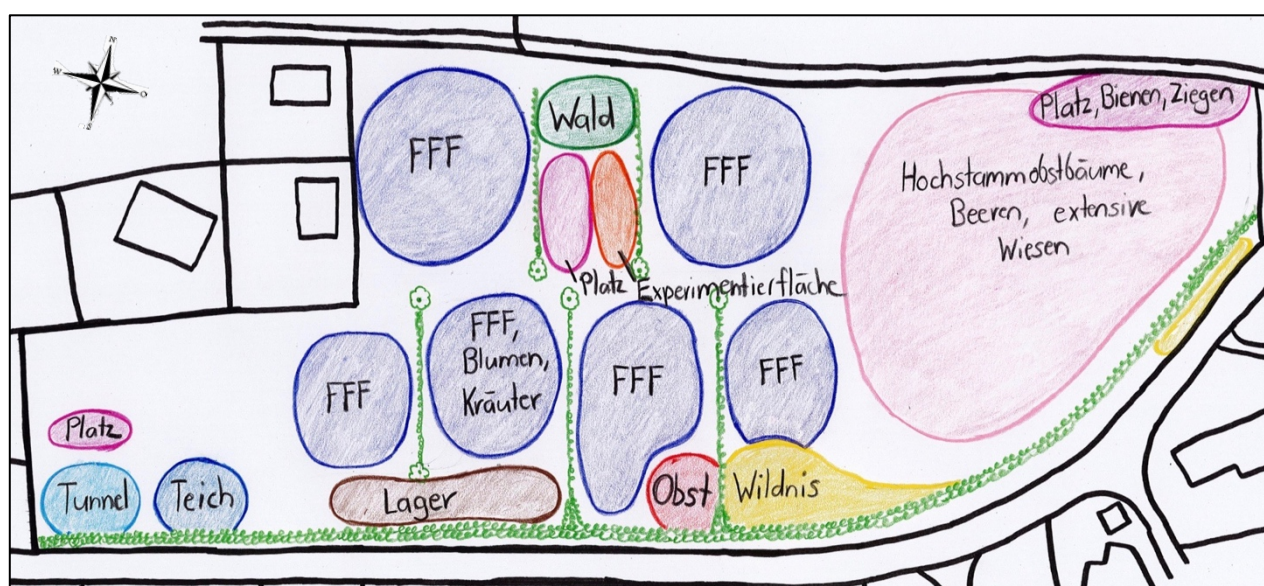 N
W
O
S
FFF
Wald
FFF
Platz, Bienen, Ziegen
Hochstammobstbäume,
Beeren, extensive
Wiesen
Platz
Experimentierfläche
FFF
FFF,
Blumen,
Kräuter
FFF
FFF
Platz
Tunnel
Teich
Lager
Obst
Wildnis